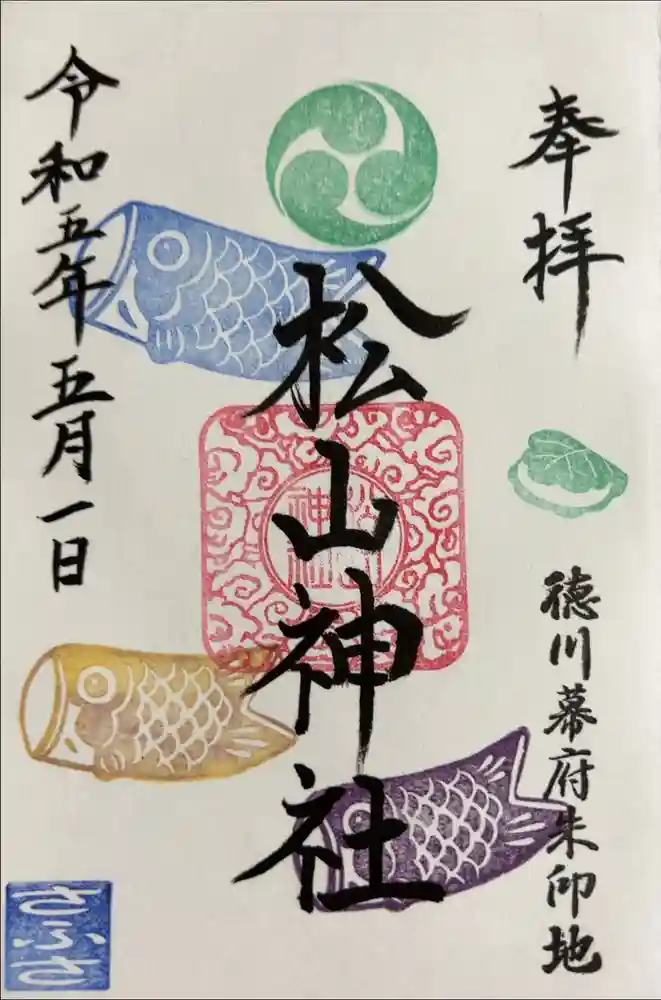 奉拝
徳川幕府朱印地
松山神社
松山
神社
令和五年五月一日
さふさ